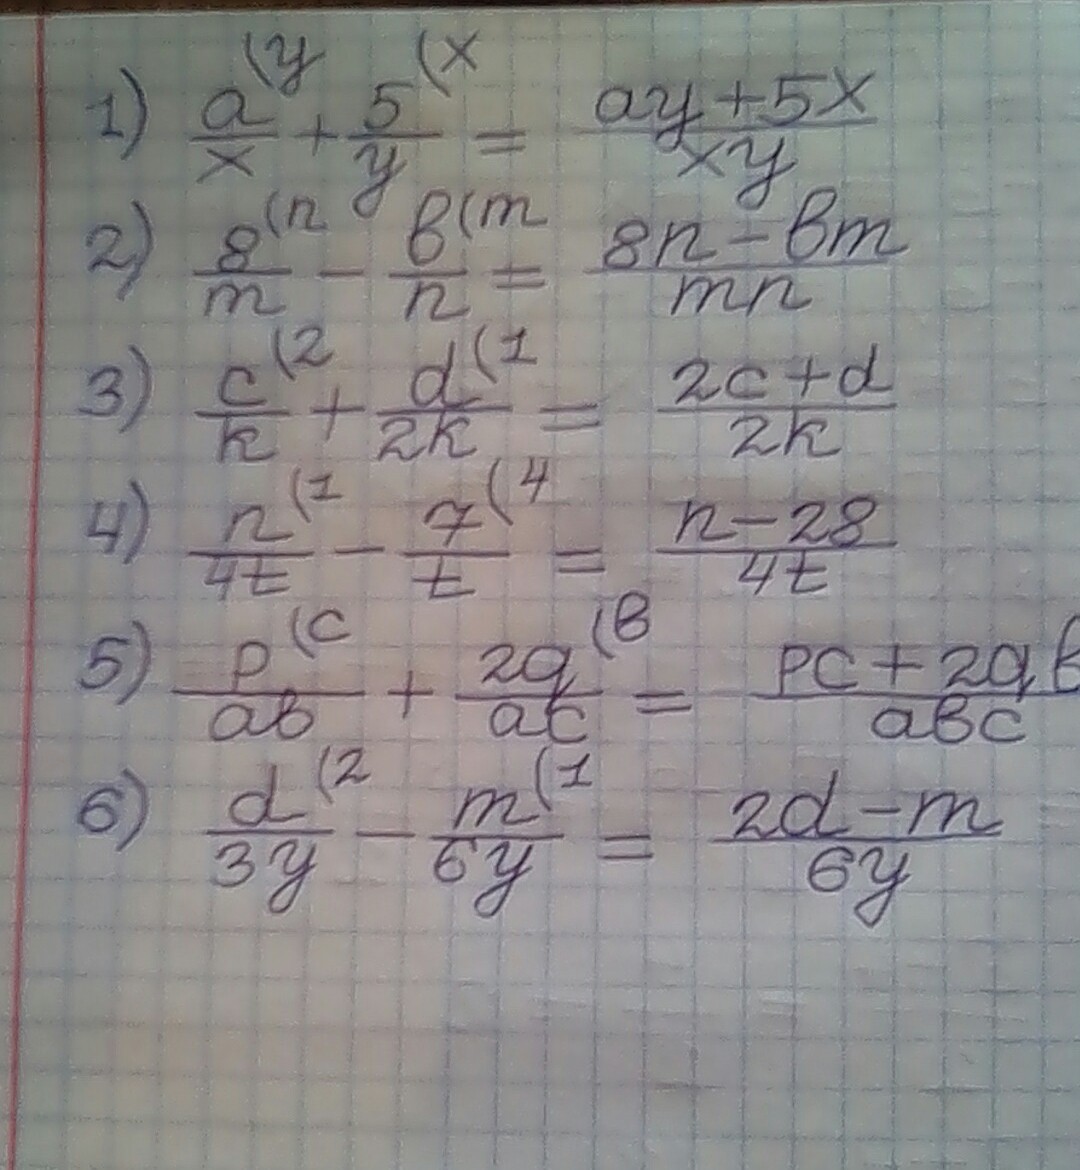 1) a/x (y + 5/y (x = ay+5x/xy
2) 8/m (n - b/n (m = 8n-bm/mn
3) c/k (2 + d/2k (1 = 2c+d/2k
4) n/4t (1 - 7/t (4 = n-28/4t
5) p/ab (c + 2q/ac (b = pc+2qb/abc
6) d/3y (2 - m/6y (1 = 2d-m/6y